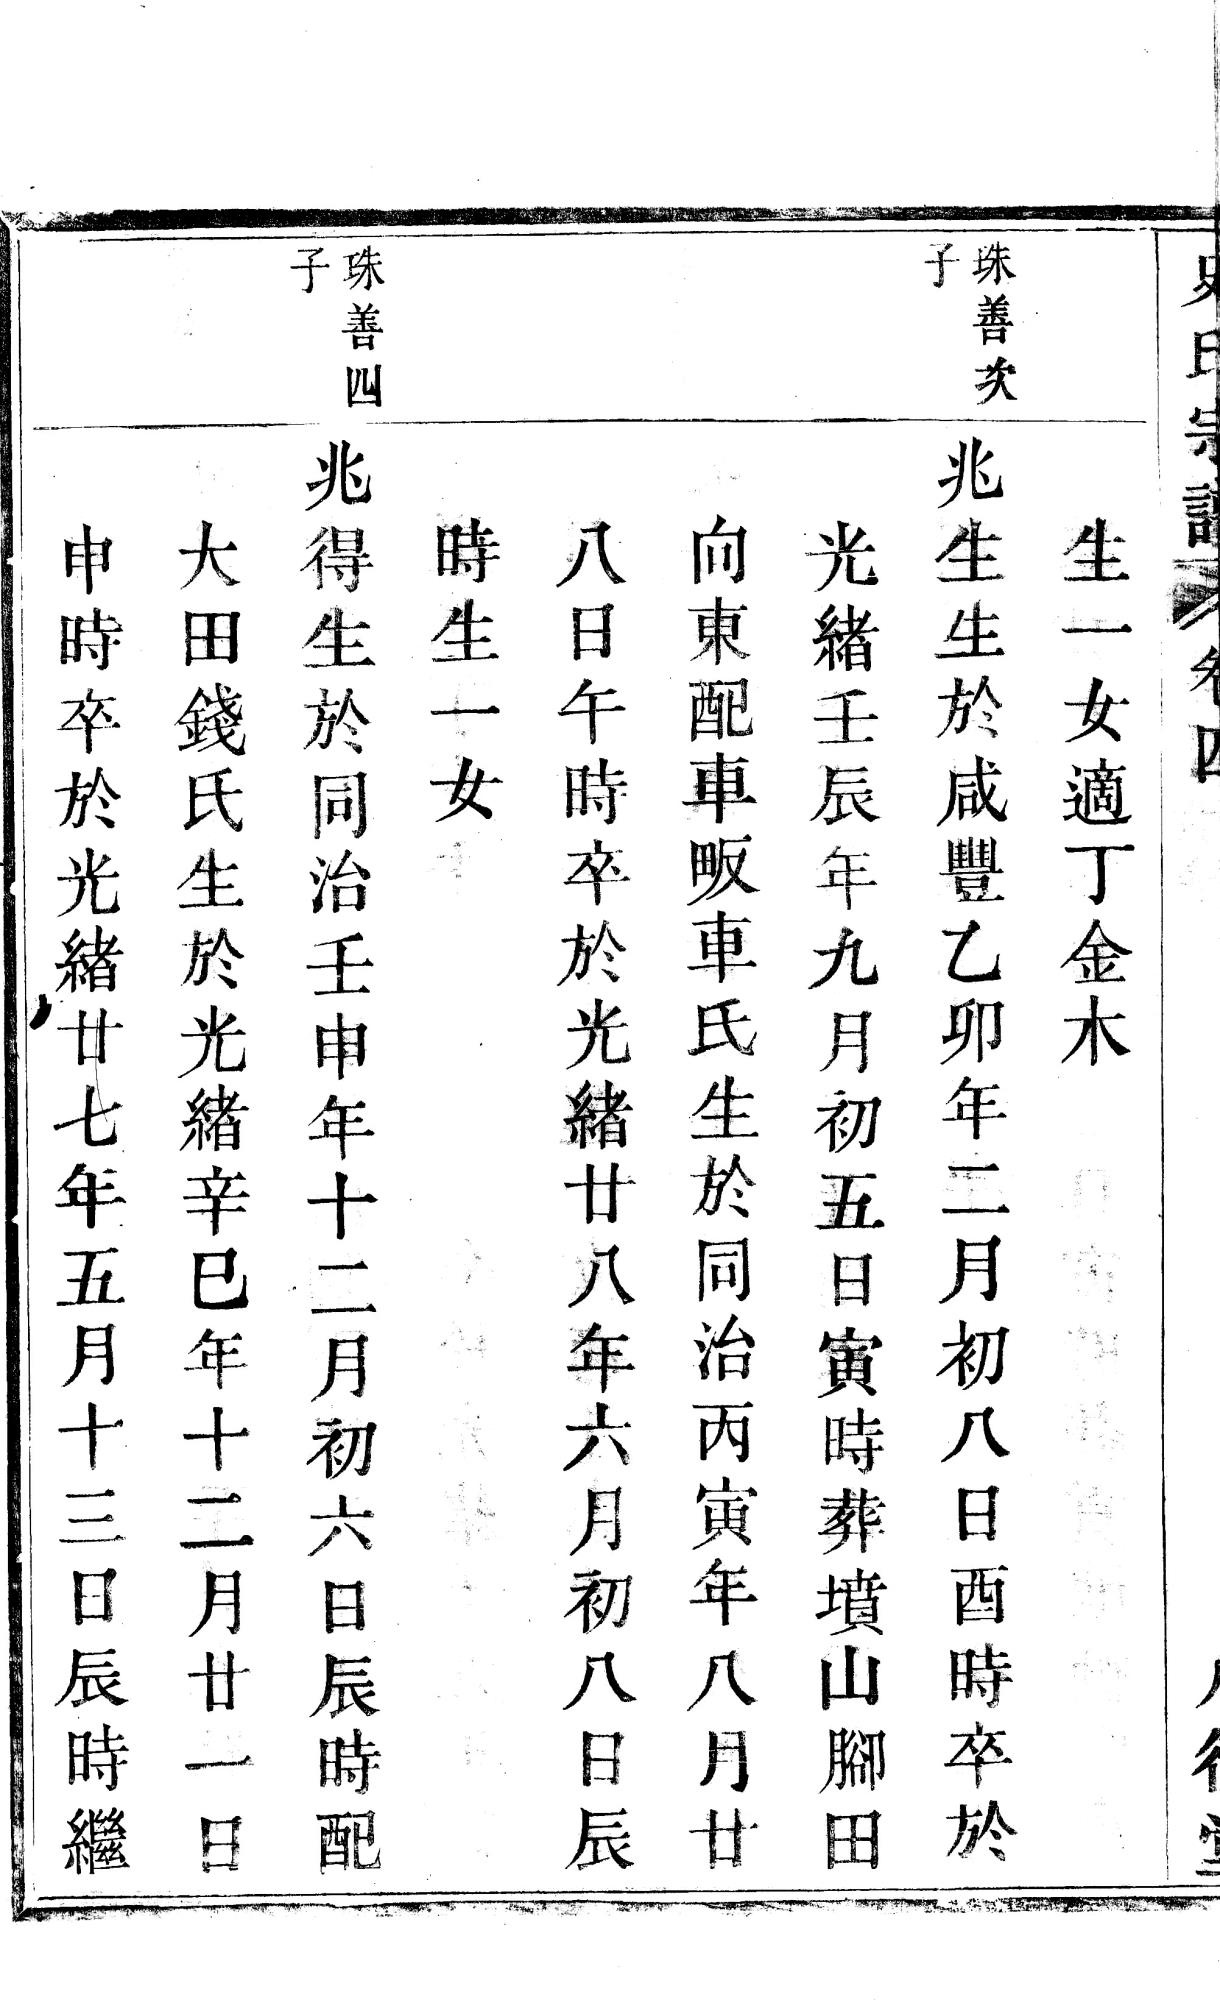 史氏宗譜
卷四
八行堂
生一女適丁金木
珠善次
子
兆生生於咸豐乙卯年二月初八日酉時卒於
光緒壬辰年九月初五日寅時葬墳山腳田
向東配車畈車氏生於同治丙寅年八月廿
八日午時卒於光緒廿八年六月初八日辰
時生一女
珠善四
子
兆得生於同治壬申年十二月初六日辰時配
大田錢氏生於光緒辛巳年十二月廿一日
申時卒於光緒廿七年五月十三日辰時繼